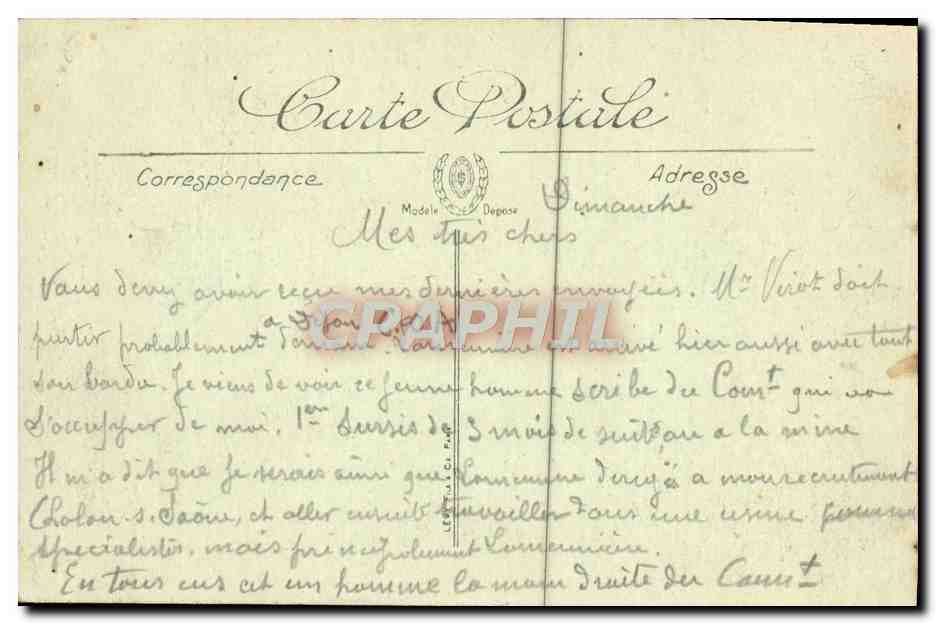 Carte Postale
Correspondance
Adresse
Modele Déposé
Dimanche
Mes très chers
Vous devez avoir reçu mes dernières envoyées. Mr Virot doit
a Dijon
partir probablement est arrivé hier aussi avec tout
son barda. Je viens de voir ce jeune homme scribe du Comt qui va
s'occuper de moi. 1er Sursis de 3 mois de suite ou a la mine
Il m'a dit que je serais ainsi que dirigé a mon recrutement
Chalon s. Saône, et aller ensuite travailler dans une usine comme
specialistes, mais principalement
En tous cas cet un homme la main droite du Comt
CPAPHIL